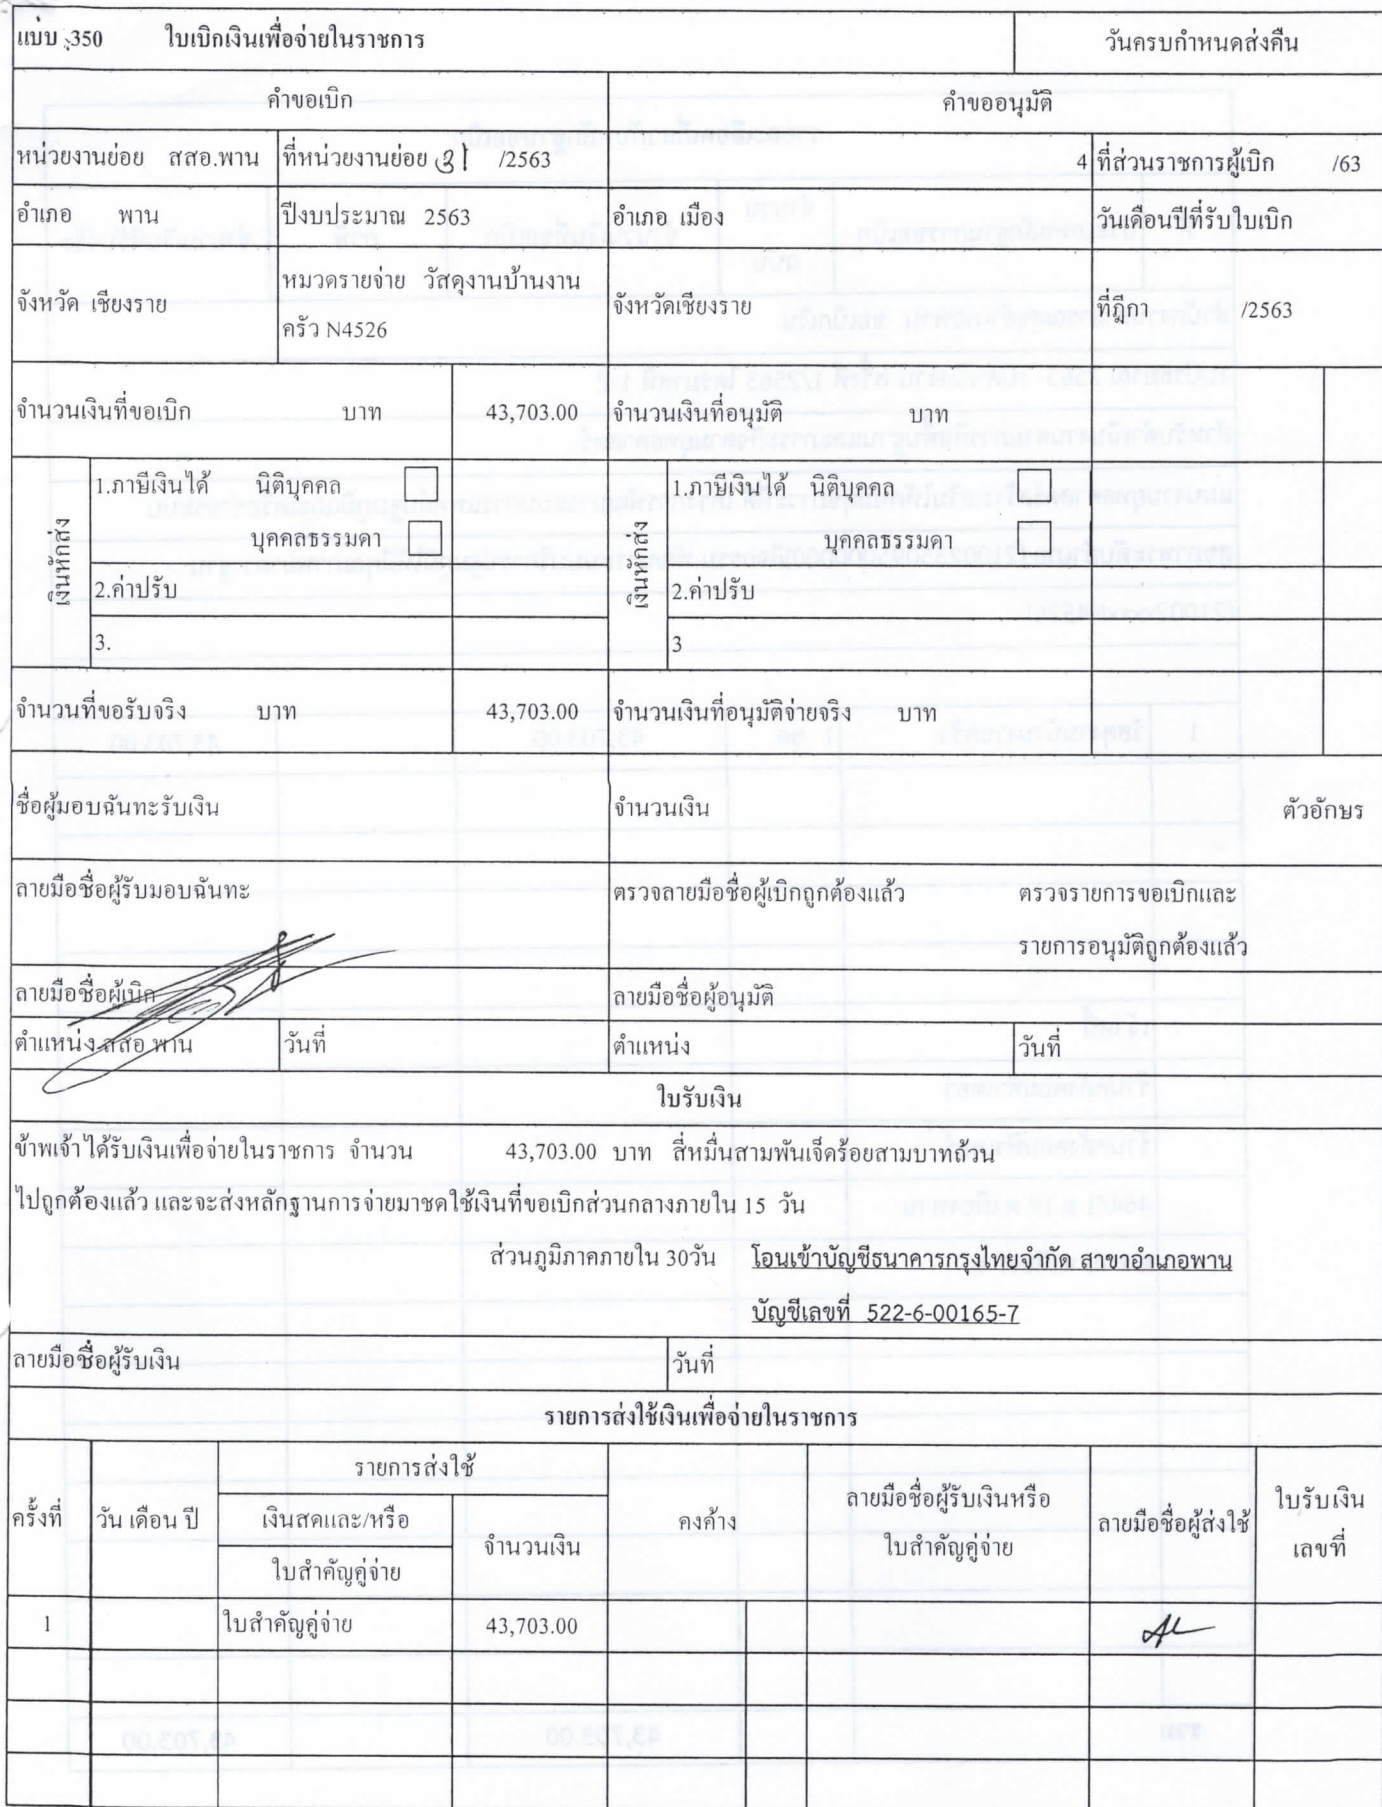 แบบ 350 ใบเบิกเงินเพื่อจ่ายในราชการ วันครบกำหนดส่งคืน
คำขอเบิก คำขออนุมัติ
หน่วยงานย่อย สสอ.พาน ที่หน่วยงานย่อย 31 /2563 4 ที่ส่วนราชการผู้เบิก /63
อำเภอ พาน ปีงบประมาณ 2563 อำเภอ เมือง วันเดือนปีที่รับใบเบิก
จังหวัด เชียงราย หมวดรายจ่าย วัสดุงานบ้านงาน จังหวัดเชียงราย ที่ฎีกา /2563
ครัว N4526
จำนวนเงินที่ขอเบิก บาท 43,703.00 จำนวนเงินที่อนุมัติ บาท
เงินหักส่ง 1.ภาษีเงินได้ นิติบุคคล เงินหักส่ง 1.ภาษีเงินได้ นิติบุคคล
บุคคลธรรมดา บุคคลธรรมดา
2.ค่าปรับ 2.ค่าปรับ
3. 3
จำนวนที่ขอรับจริง บาท 43,703.00 จำนวนเงินที่อนุมัติจ่ายจริง บาท
ชื่อผู้มอบฉันทะรับเงิน จำนวนเงิน ตัวอักษร
ลายมือชื่อผู้รับมอบฉันทะ ตรวจลายมือชื่อผู้เบิกถูกต้องแล้ว ตรวจรายการขอเบิกและ
รายการอนุมัติถูกต้องแล้ว
ลายมือชื่อผู้เบิก ลายมือชื่อผู้อนุมัติ
ตำแหน่ง สสอ.พาน วันที่ ตำแหน่ง วันที่
ใบรับเงิน
ข้าพเจ้าได้รับเงินเพื่อจ่ายในราชการ จำนวน 43,703.00 บาท สี่หมื่นสามพันเจ็ดร้อยสามบาทถ้วน
ไปถูกต้องแล้ว และจะส่งหลักฐานการจ่ายมาชดใช้เงินที่ขอเบิกส่วนกลางภายใน 15 วัน
ส่วนภูมิภาคภายใน 30วัน โอนเข้าบัญชีธนาคารกรุงไทยจำกัด สาขาอำเภอพาน
บัญชีเลขที่ 522-6-00165-7
ลายมือชื่อผู้รับเงิน วันที่
รายการส่งใช้เงินเพื่อจ่ายในราชการ
ครั้งที่ วัน เดือน ปี รายการส่งใช้ คงค้าง ลายมือชื่อผู้รับเงินหรือ ลายมือชื่อผู้ส่งใช้ ใบรับเงิน
เงินสดและ/หรือ จำนวนเงิน ใบสำคัญคู่จ่าย เลขที่
ใบสำคัญคู่จ่าย
1 ใบสำคัญคู่จ่าย 43,703.00